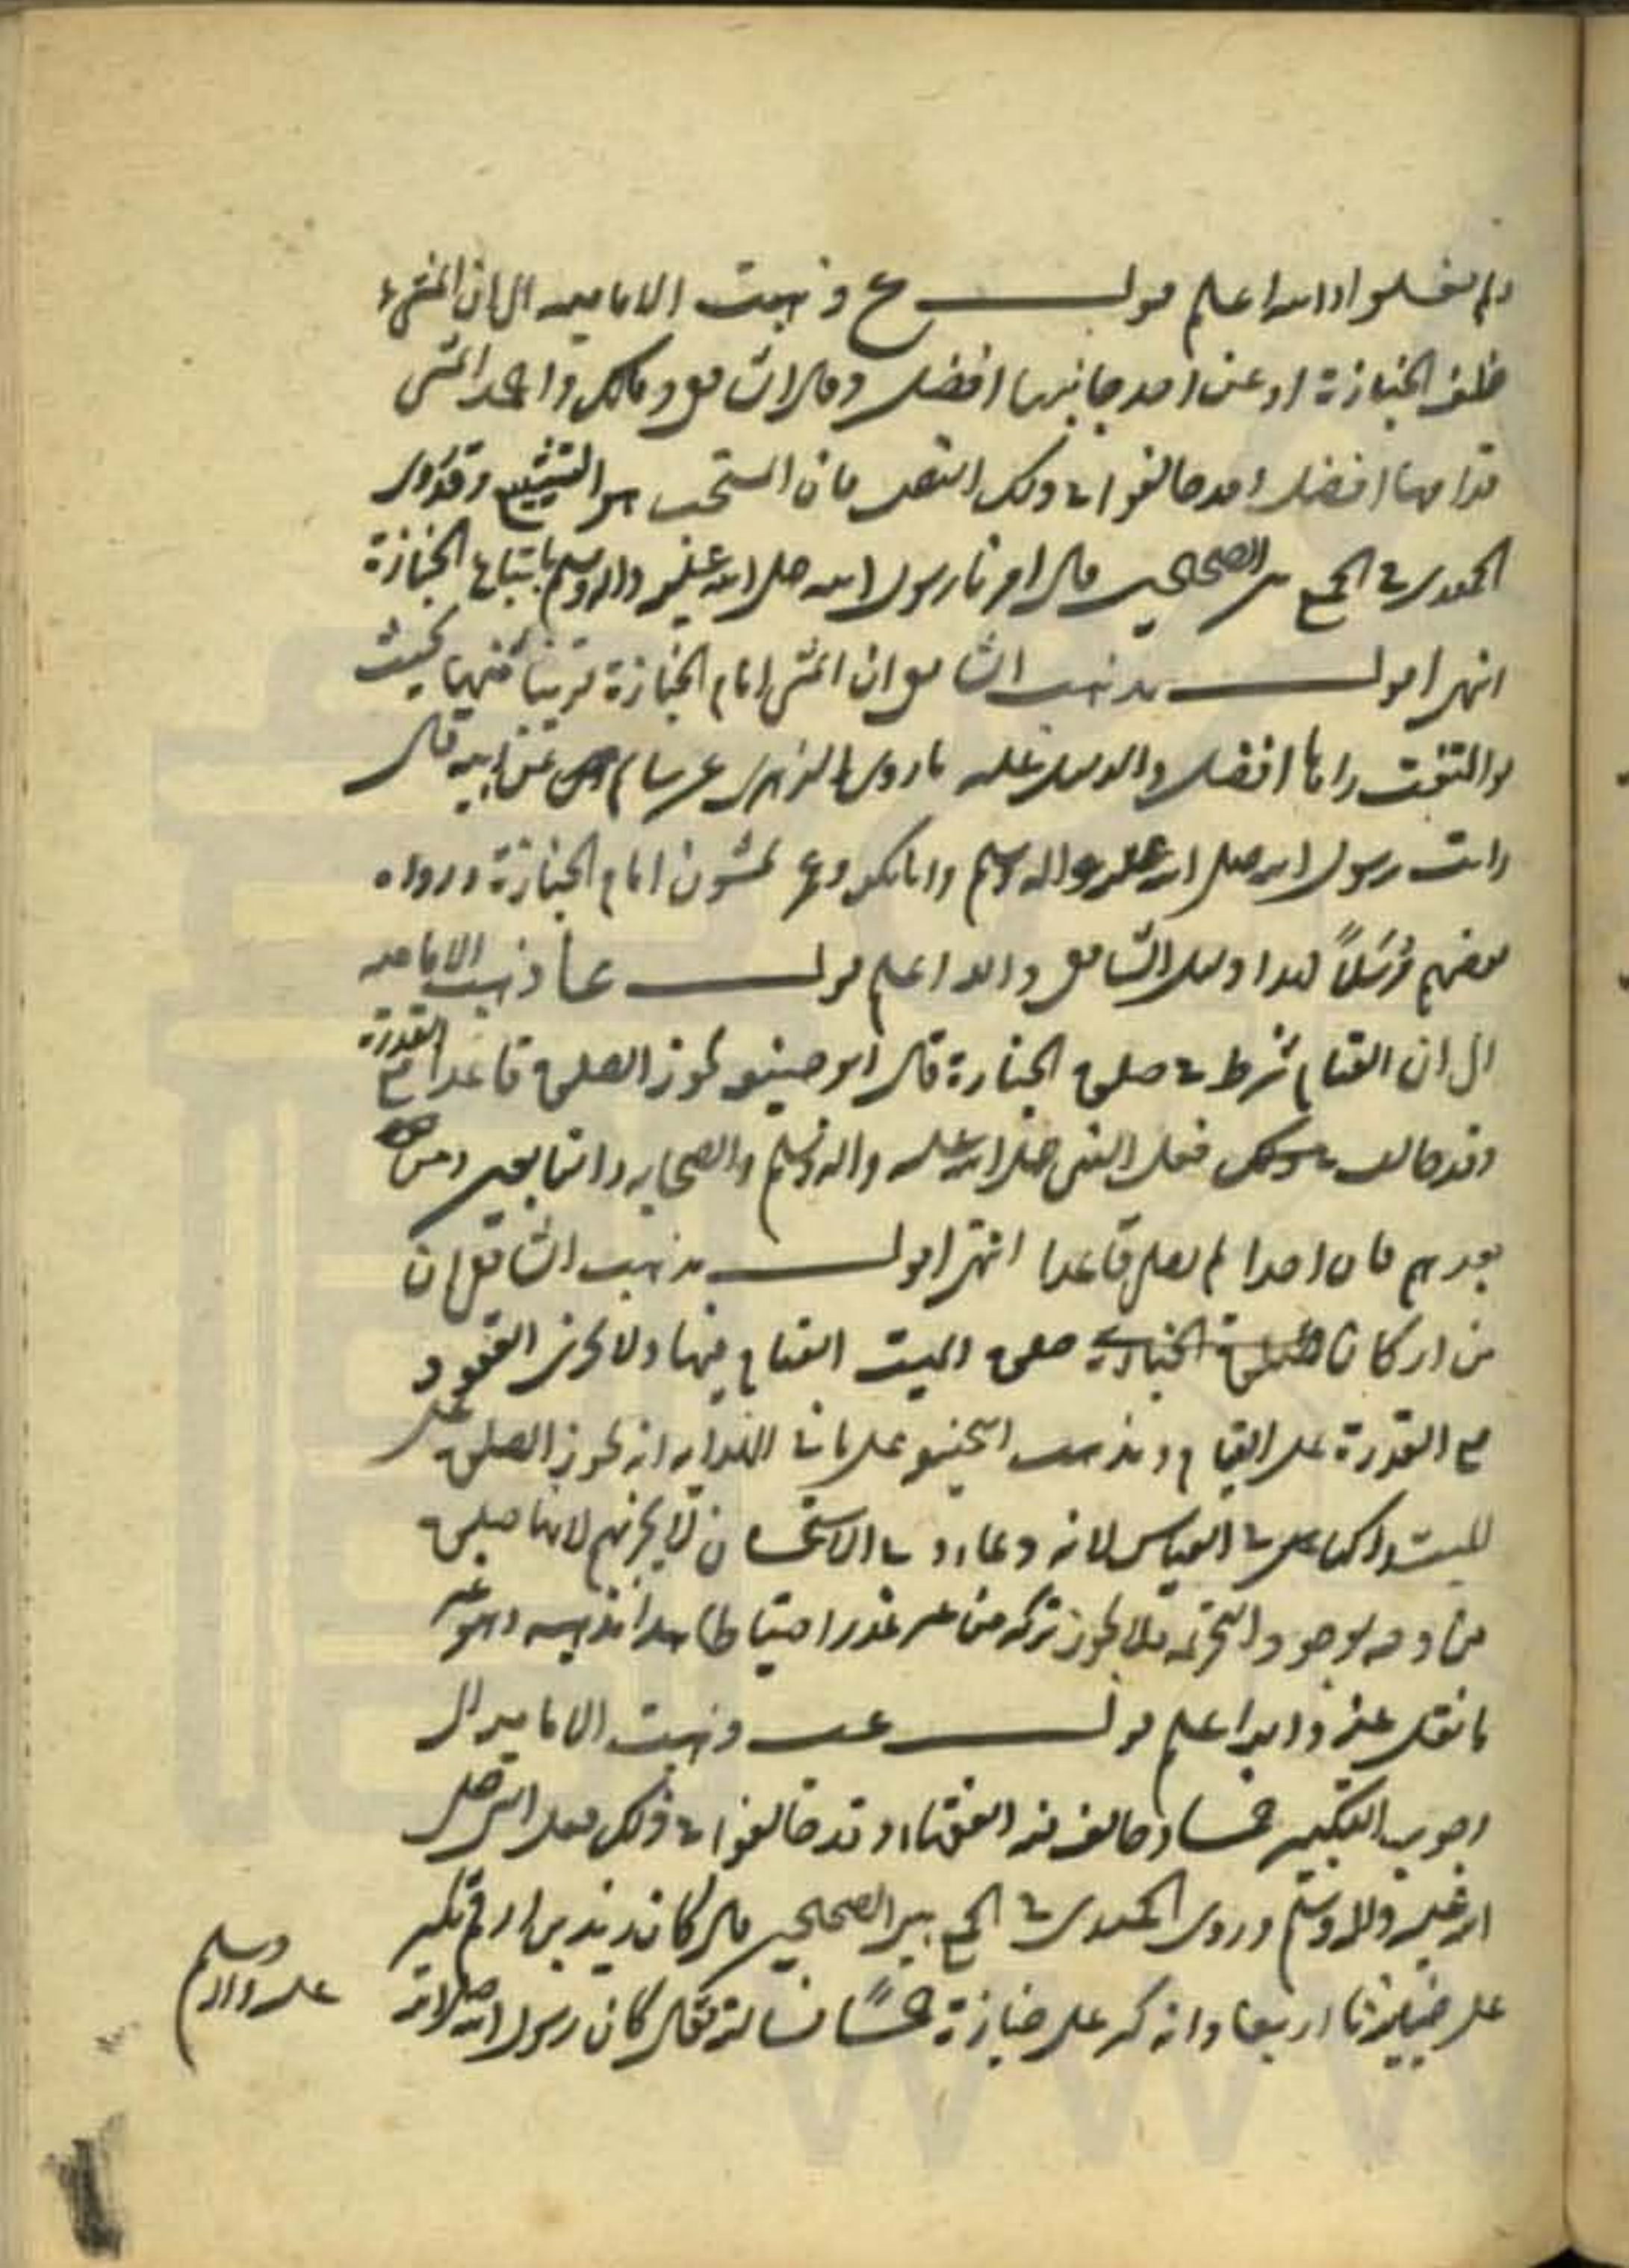 ولم يغسلوا والله اعلم قوله ع ذهبت الامامية الى ان المشي
خلف الجنازة او عن احد جانبيها افضل وقال الشافعي ومالك واحمد المشي
قدامها افضل وقد خالفوا في ذلك النص فان المستحب هو التشييع وقد روى
الحميدي في الجمع بين الصحيحين قال امرنا رسول الله صلى الله عليه واله وسلم باتباع الجنازة
انتهى اقول مذهب الشافعي ان المشي امام الجنازة قريبا منها بحيث
لو التفت راها افضل والدليل عليه ما روى الزهري عن سالم عن ابيه قال
رايت رسول الله صلى الله عليه واله وسلم وابا بكر وعمر يمشون امام الجنازة ورواه
بعضهم مرسلاً هذا دليل الشافعي والله اعلم قوله عا ذهبت الامامية
الى ان القيام شرط في صلوة الجنازة قال ابو حنيفة يجوز الصلوة قاعدا مع القدرة
وقد خالف في ذلك فعل النبي صلى الله عليه واله وسلم والصحابه والتابعين ومن
بعدهم فان احدا لم يصل قاعدا انتهى اقول مذهب الشافعي ان
من اركان صلوة الميت القيام فيها ولا يجوز القعود
مع القدرة على القيام ومذهب ابي حنيفة على ما في الهداية انه يجوز الصلوة على
الميت راكبا في القياس لانه دعاء وفي الاستحسان لا يجزيهم لانها صلوة
من وجه لوجود التحريمة فلا يجوز تركه من غير عذر احتياطا هذا مذهبه وهو غير
ما نقل عنه والله اعلم قوله عب ذهبت الامامية الى
وجوب التكبير خمسا وخالف فيه الفقهاء وقد خالفوا في ذلك فعل النبي صلى
الله عليه واله وسلم وروى الحميدي في الجمع بين الصحيحين قال كان زيد بن ارقم يكبر
على جنايزنا اربعا وانه كبر على جنازة خمسًا فسالته فقال كان رسول الله صلى الله
عليه واله وسلم